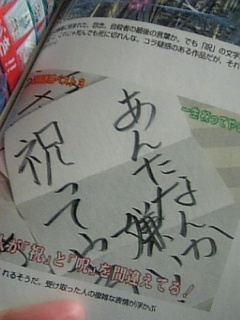 自殺者の最後の言葉か。でも『呪』の文字
じゃ死んでも死に切れんな。コラ疑惑のある作品だが、それ
あんた
なんか
嫌い
祝ってや
が『祝』と『呪』を間違えてる!
れるそうだ。受け取った人の複雑な表情が浮かぶ